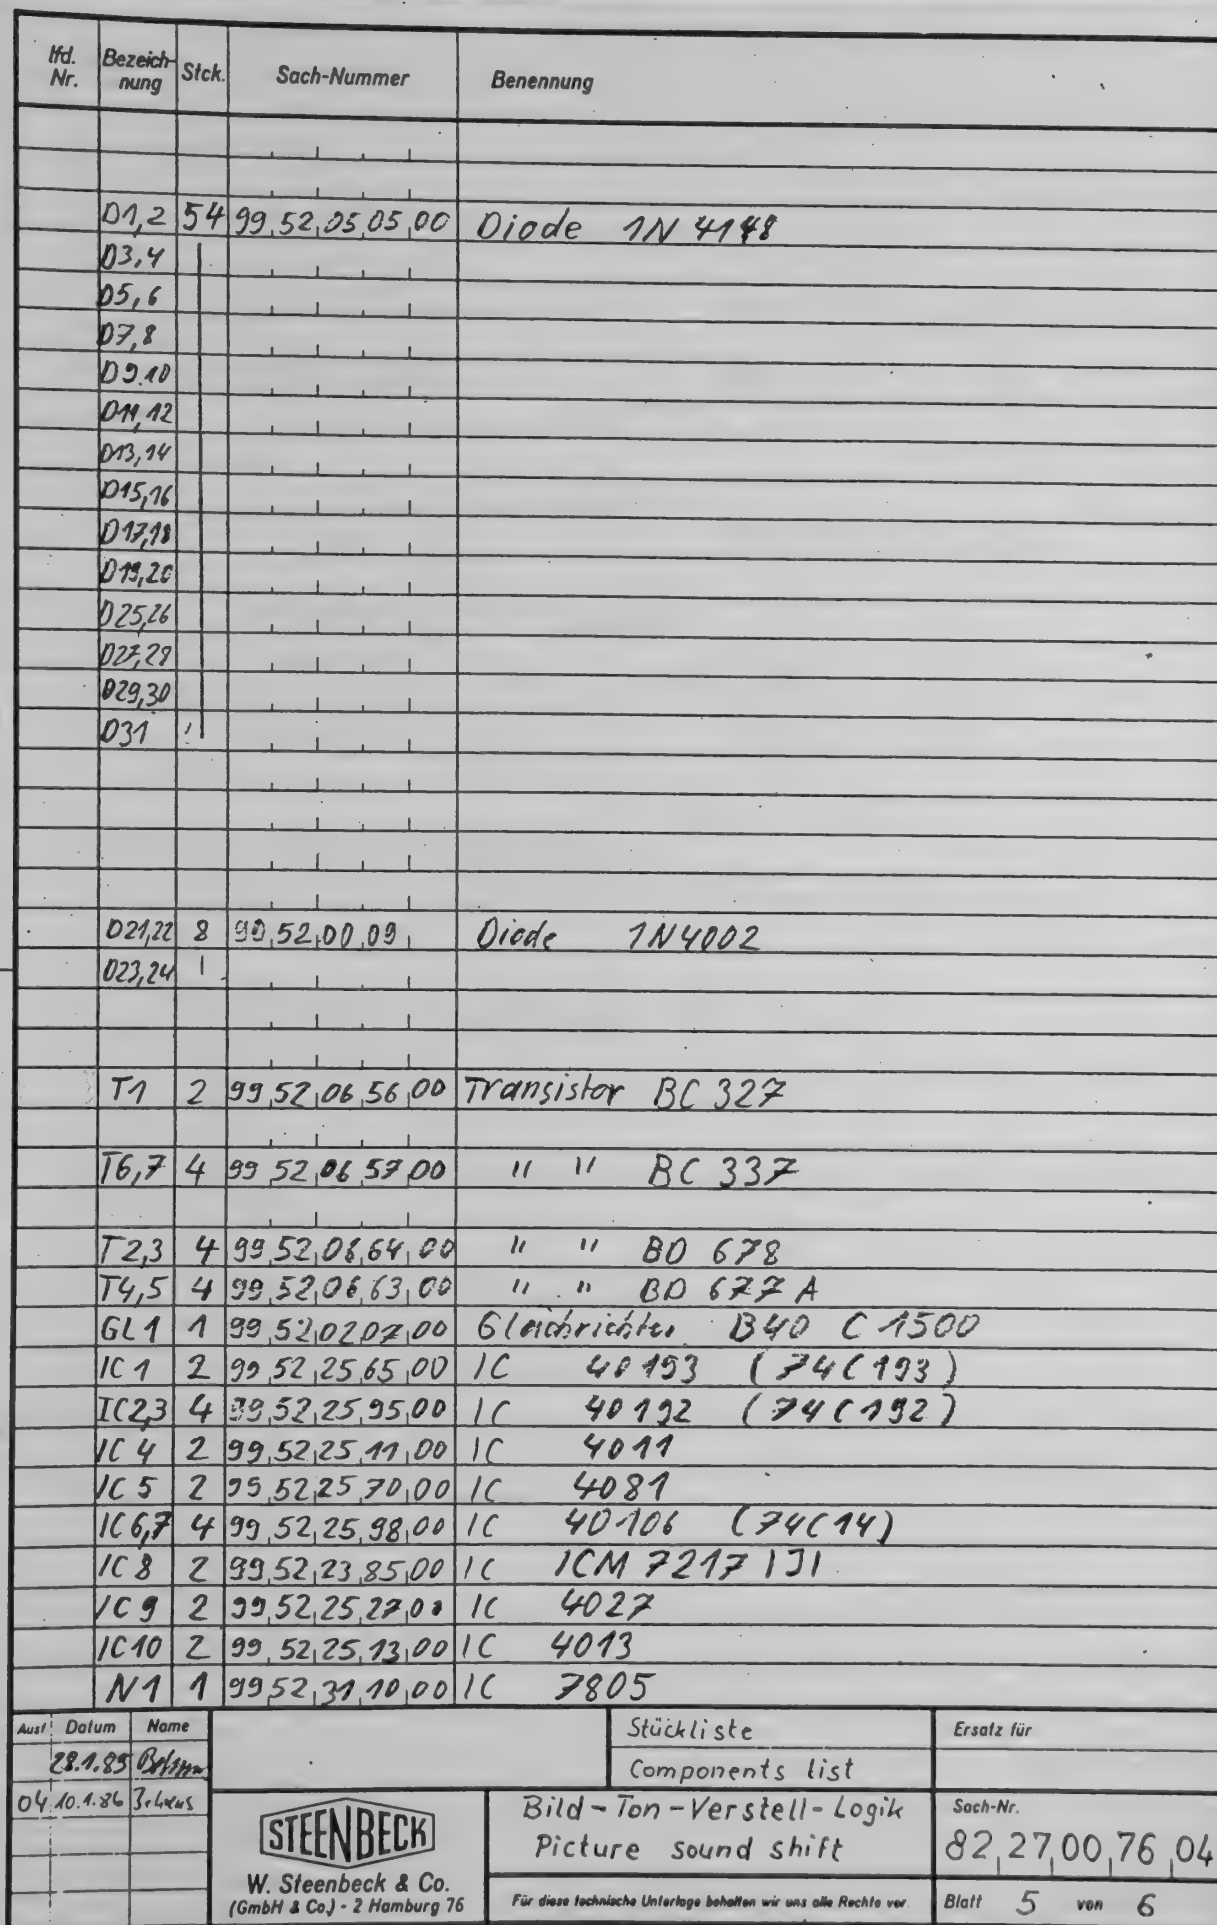 lfd. Nr. Bezeich-nung Stck. Sach-Nummer Benennung
D1,2 54 99,52,05,05,00 Diode 1N 4148
D3,4
D5,6
D7,8
D9.10
D11,12
D13,14
D15,16
D17,18
D19,20
D25,26
D27,28
D29,30
D31
D21,22 8 90,52,00,09, Diode 1N4002
D23,24
T1 2 99,52,06,56,00 Transistor BC 327
T6,7 4 99,52,06,57,00 " " BC 337
T2,3 4 99,52,06,64,00 " " BD 678
T4,5 4 99,52,06,63,00 " " BD 677 A
GL1 1 99,52,02,07,00 Gleichrichter B40 C 1500
IC 1 2 99,52,25,65,00 IC 40193 (74C193)
IC2,3 4 99,52,25,95,00 IC 40192 (74C192)
IC 4 2 99,52,25,11,00 IC 4011
IC 5 2 99,52,25,70,00 IC 4081
IC 6,7 4 99,52,25,98,00 IC 40106 (74C14)
IC 8 2 99,52,23,85,00 IC ICM 7217 IJI
IC 9 2 99,52,25,27,00 IC 4027
IC10 2 99,52,25,13,00 IC 4013
N1 1 99,52,31,10,00 IC 7805
Ausf Datum Name
28.1.85
04 10.1.86
Stückliste
Components list
Ersatz für
STEENBECK
W. Steenbeck & Co.
(GmbH & Co.) - 2 Hamburg 76
Bild-Ton-Verstell-Logik
Picture sound shift
Sach-Nr.
82,27,00,76,04
Für diese technische Unterlage behalten wir uns alle Rechte vor
Blatt 5 von 6